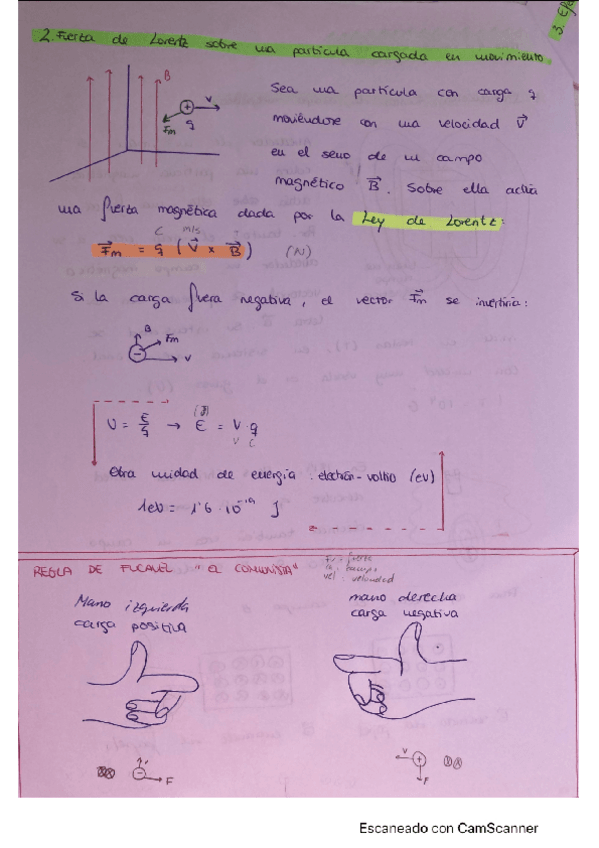 2. Fuerza de Lorentz sobre una partícula cargada en movimiento
B
V
Fm
q
Sea una partícula con carga q
moviéndose con una velocidad V⃗
en el seno de un campo
magnético B⃗. Sobre ella actúa
una fuerza magnética dada por la Ley de Lorentz:
C m/s
F⃗m = q (V⃗ x B⃗) (N)
Si la carga fuera negativa, el vector F⃗m se invertiría:
B
Fm
V
(J)
V = E/q → E = V·q
V C
Otra unidad de energía: electrón-voltio (eV)
1eV = 1'6·10⁻¹⁹ J
REGLA DE "EL COMUNISTA"
fu: fuerza
vel: velocidad
Mano izquierda
carga positiva
mano derecha
carga negativa
F
V
F
Escaneado con CamScanner